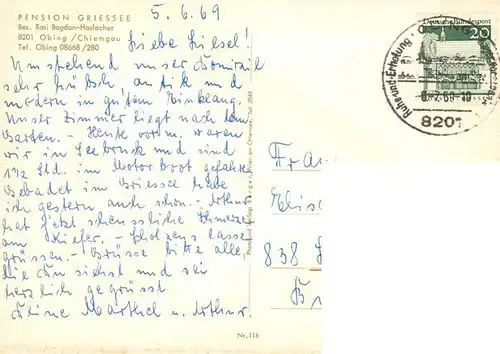 PENSION GRIESSEE
Bes. Rosi Bogdan-Haslacher
8201 Obing / Chiemgau
Tel. Obing 08668 / 280
5. 6. 69
Liebe Liesel!
Umstehend unser Domizil
sehr hübsch, antik und
modern in gutem Einklang.
Unser Zimmer liegt nach dem
Garten. - Heute vorm. waren
wir in Seebruck und sind
1 1/2 Std. im Motorboot gefahren
Gebadet im Griessee habe
ich gestern auch schon. - Arthur
hat jetzt scheussliche Schmerzen
am Kiefer. - Scholzens lassen
grüssen. - Grüsse bitte alle
die Du siehst und sei
herzlich gegrüsst
Deine Marthel u. Arthur.
Nr. 116
Deutsche Bundespost
20
Ruhe und Erholung
8201
Frau
Elise
838